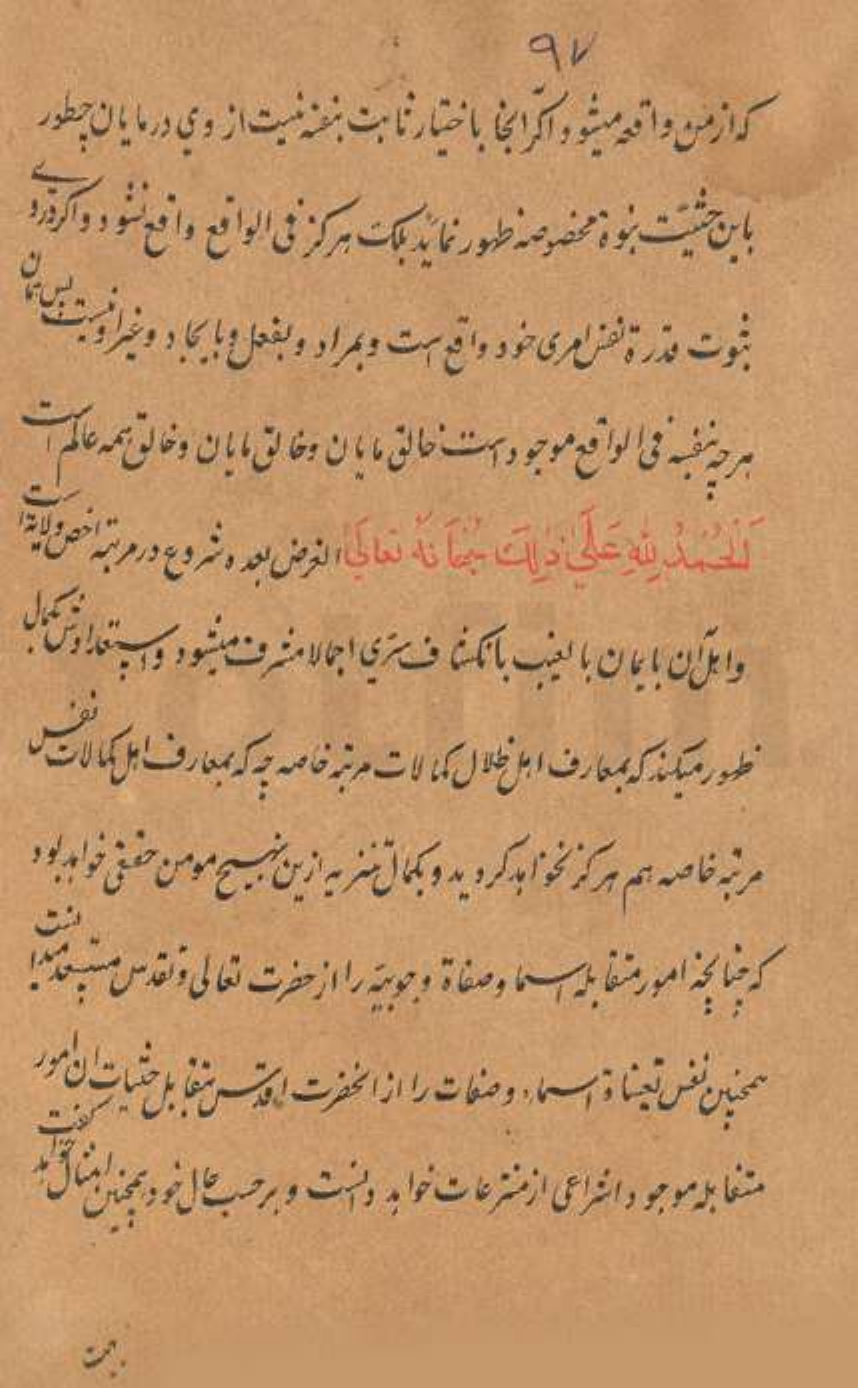 ۹۷
که از من واقعه میشود و اگر انجا باختیار ثابت بنفسه نیست از وی در مایان چطور
باین حیثیت بنوة مخصوصه ظهور نماید بلکه هرکز فی الواقع واقع نشود و اکر در وے
ثبوت قدرة نفس امری خود واقع است و بمراد و بفعل و بایجاد و غیر او نیست پس همان
هرچه بنفسه فی الواقع موجود است خالق مایان و خالق مایان و خالق همه عالم است
اَلْحَمْدُ لِلّٰهِ عَلَی ذٰلِكَ سُبْحَانَهُ تَعَالٰی الغرض بعده شروع در مرتبه اخص ولایة است
و اهل آن بایمان بالغیب بانکشاف سری اجمالا مشرف میشود و استعدادش بکمال
ظهور میکند که بمعارف اهل ظلال کمالات مرتبه خاصه چه که بمعارف اهل کمالات نفس
مرتبه خاصه هم هرکز نخواهد کروید و بکمال تنزیه ازین هیچ مومن حقیقی خواهد بود
که چنانچه امور متقابله اسما و صفاة وجوبیّه را از حضرت تعالی و تقدس مستبعد میدانست
همچنین نفس تعیناة اسماء و صفات را از انحضرت اقدس متقابل حیثیات ان امور
متقابله موجود انتزاعی از منتزعات خواهد دانست و برحسب حال خود همچنین امتثال خواهد گفت